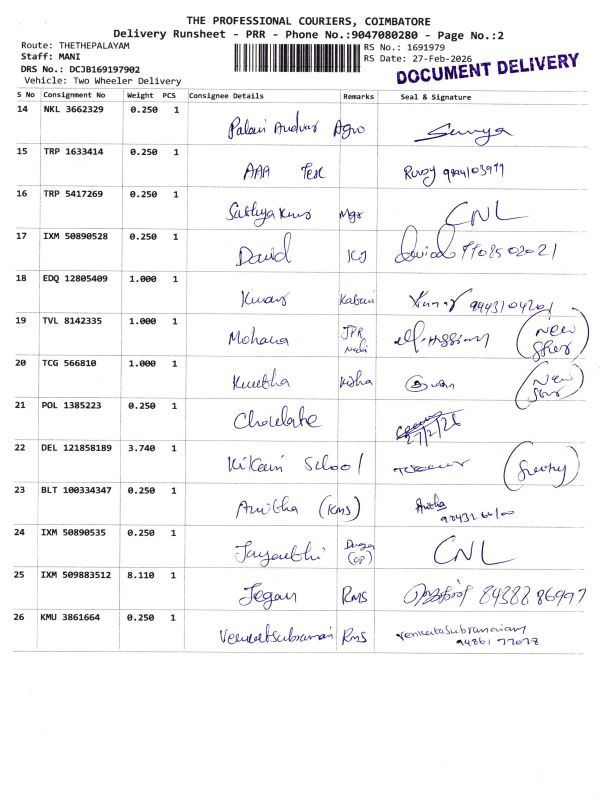 THE PROFESSIONAL COURIERS, COIMBATORE
Delivery Runsheet - PRR - Phone No.:9047080280 - Page No.:2
Route: THETHEPALAYAM
RS No.: 1691979
Staff: MANI
RS Date: 27-Feb-2026
DRS No.: DCJB169197902
Vehicle: Two Wheeler Delivery
DOCUMENT DELIVERY
S No Consignment No Weight PCS Consignee Details Remarks Seal & Signature
14 NKL 3662329 0.250 1 Palani Andvar Agro
15 TRP 1633414 0.250 1 AAA Tex
16 TRP 5417269 0.250 1 Sathya Mgr CNL
17 IXM 50890528 0.250 1 David KG David
18 EDQ 12805409 1.000 1 Kumar Kumar
19 TVL 8142335 1.000 1 Mohana (New
20 TCG 566810 1.000 1 (New
21 POL 1385223 0.250 1 Chocolate 27/2/26
22 DEL 121858189 3.740 1 Kikani School
23 BLT 100334347 0.250 1 Anitha (KMS) Anitha
24 IXM 50890535 0.250 1 (OP) CNL
25 IXM 509883512 8.110 1 Jegan RMS 84388 86997
26 KMU 3861664 0.250 1 Venkatsubraman RMS Venkatasubramaniam
94861 77078